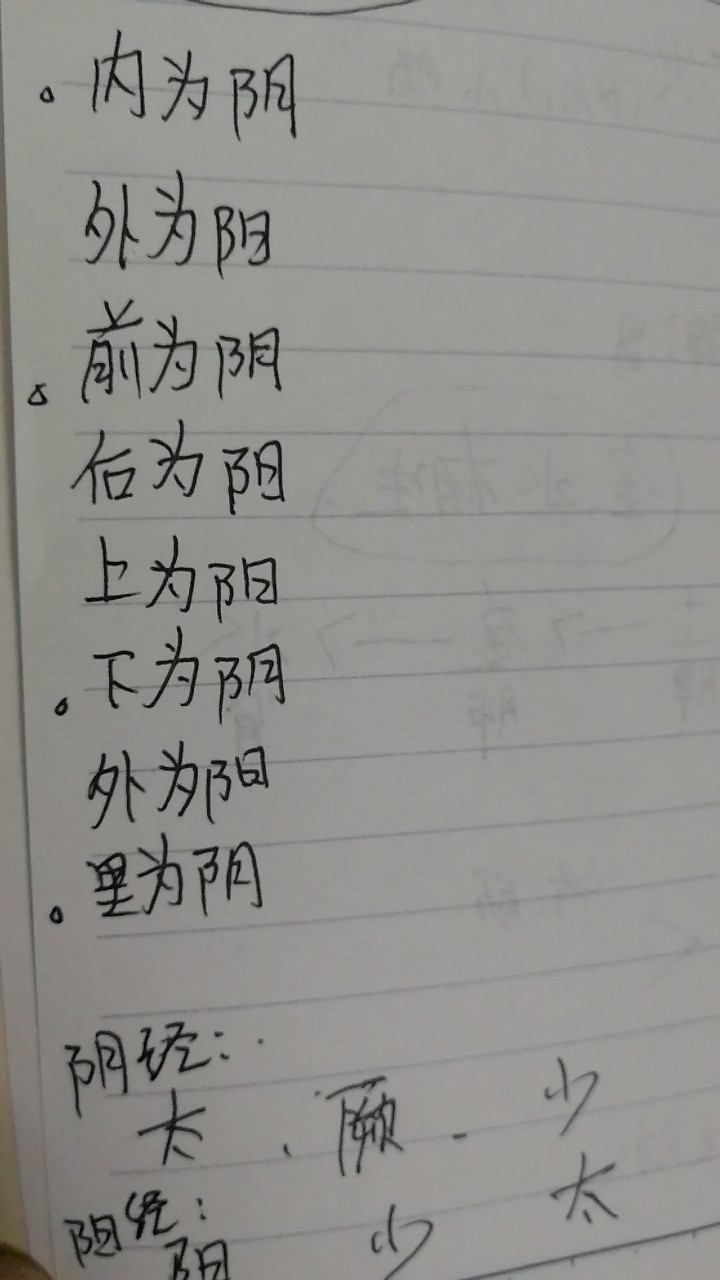 。内为阴
外为阳
。前为阴
后为阳
上为阳
。下为阴
外为阳
。里为阴
阴经：
太、厥、少
阳经：
阳 少 太